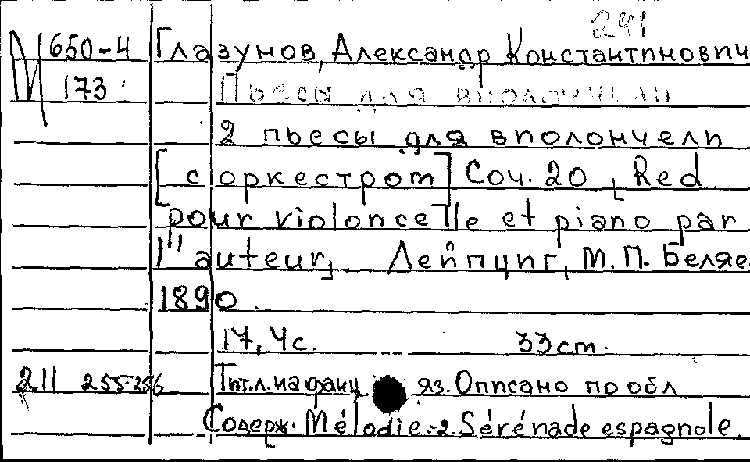 241
М 650-4 Глазунов, Александр Константинович
173 Пьесы для виолончели
2 пьесы для виолончели
[с оркестром] Соч. 20 [Red
pour violoncelle et piano par
l'auteur] Лейпциг, М. П. Беляе
1890.
17, 4 с. 33 cm.
211 255-256 Тит. л. на франц яз. Описано по обл
Содерж. Mélodie.-2. Sérénade espagnole.